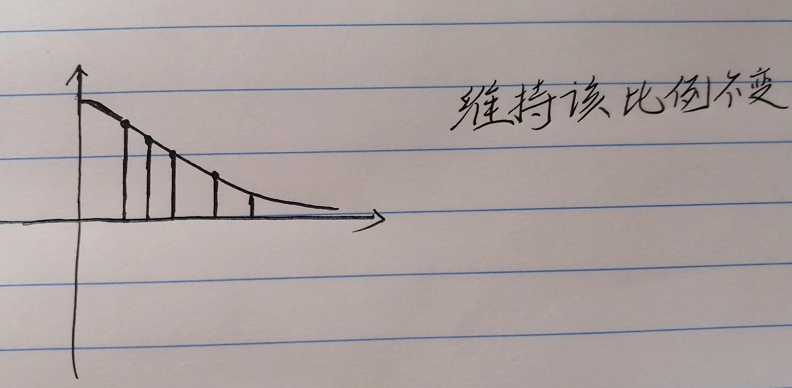 维持该比例不变